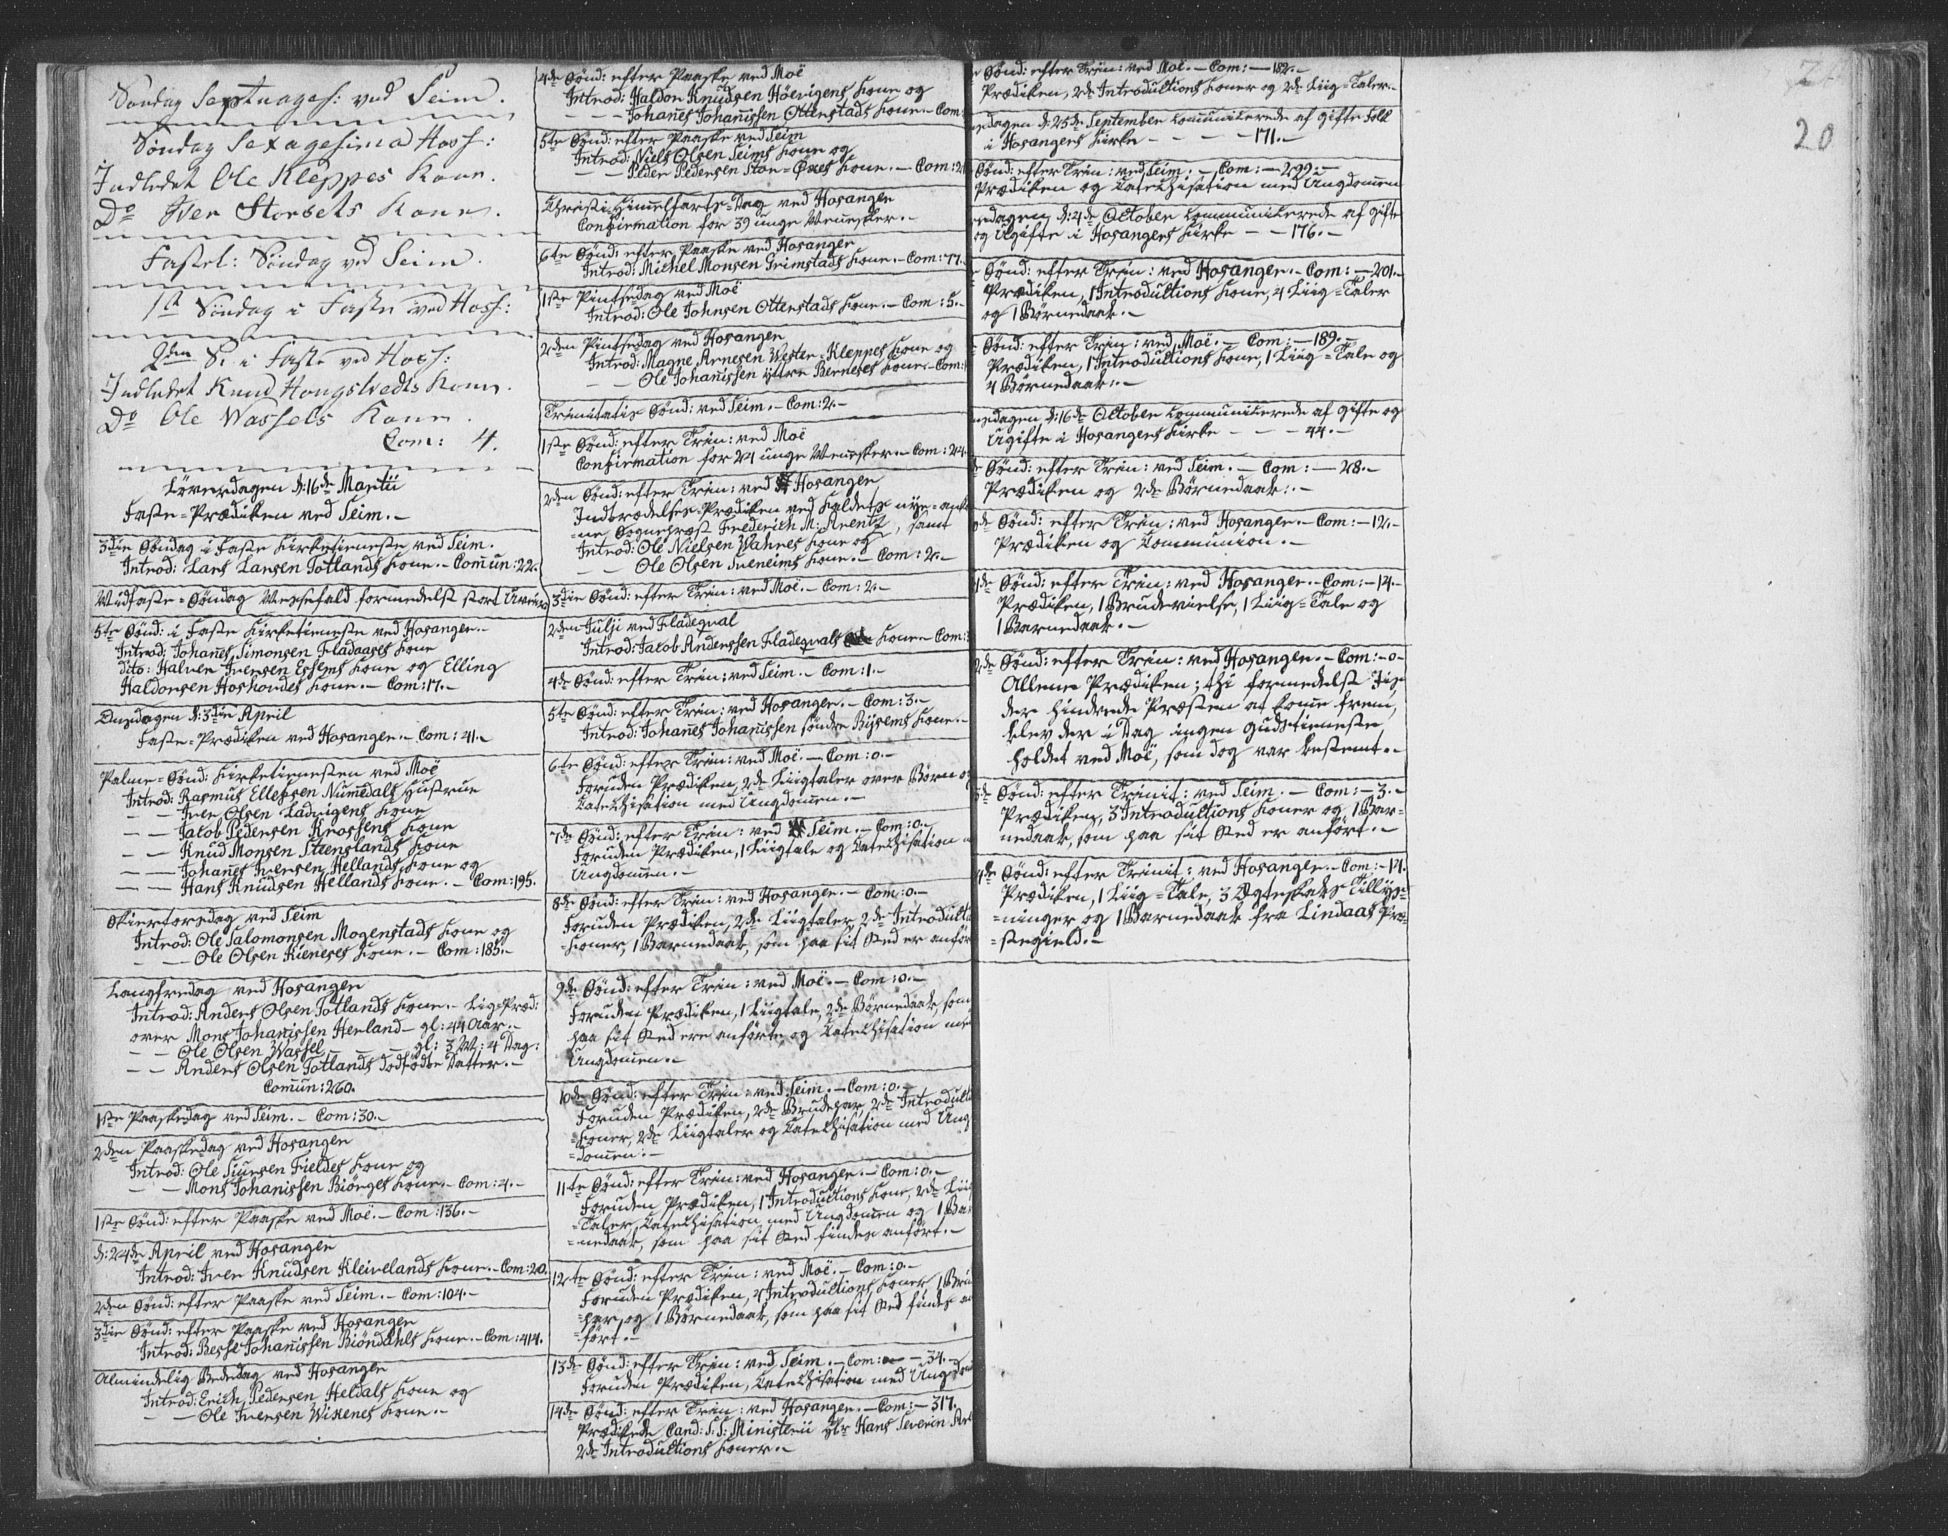 Søndag Septuages: ved Seim.
Søndag Sexagesima Hoss:
Indledet Ole Kleppes Kone.
Do Iver Storsets Kone.
Fastel: Søndag ved Seim.
1st Søndag i Faste ved Hoss:
2den S. i Faste ved Hoss:
Indledet Knud Hougstvedts Kone.
Do Ole Wassels Kone.
Com: 4.
Løverdagen d:16de Martii
Faste-Prædiken ved Seim.
3die Søndag i Faste Kirketieneste ved Seim.
Introd: Lars Larsen Totlands Kone. - Comun:22.
Midfaste-Søndag Messefald formedelst stort Uveir
5te Sønd: i Faste Kirketieneste ved Hosanger.
Introd: Johanes Simonsen Fladaases Kone
dito: Halver Iversen Essems Kone og Elling
Haldorsen Hoshovdes Kone. - Com:17.
Onsdagen d:3die April
Faste-Prædiken ved Hosanger. - Com:41.
Palme-Sønd: Kirketienesten ved Moë
Introd: Rasmus Ellefsen Numedals Hustrue
- - Iver Olsen Ladvigens Kone
- - Jacob Pedersen Krossens Kone
- - Knud Monsen Stenslands Kone
- - Johanes Iversen Hellands Kone og
- - Hans Knudsen Hellands Kone. - Com:195.
Skiertorsdag ved Seim
Introd: Ole Salomonsen Mogenstads Kone og
- - Ole Olsen Rieneses Kone. - Com:185.
Langfredag ved Hosanger
Introd: Anders Olsen Totlands Kone. - Lig-Præd:
over Mons Johanissen Herland - gl:44 Aar.
- - Ole Olsen Wassel - - gl: 3 M: 4 Dag:
- - Anders Olsen Totlands dødfødte Datter.
Comun:260.
1ste Paaskedag ved Seim. - Com:30.
2den Paaskedag ved Hosanger
Introd: Ole Siursen Fieldes Kone og
- - Mons Johanissen Biørges Kone. - Com:4.
1ste Sønd: efter Paaske ved Moë. - Com:136.
d:24de April ved Hosanger
Introd: Iver Knudsen Kleivelands Kone. - Com:20.
2den Sønd: efter Paaske ved Seim. - Com:104.
3die Sønd: efter Paaske ved Hosanger
Introd: Besse Johanissen Biøndahls Kone. - Com:414.
Almindelig Bededag ved Hosanger
Introd: Erich Pedersen Heldals Kone og
- - Ole Iversen Wikenes Kone.
4de Sønd: efter Paaske ved Moë
Introd: Haldor Knudsen Høevigens Kone og
- - Johanes Johanissen Ottenstads Kone - Com:
5te Sønd: efter Paaske ved Seim
Introd: Niels Olsen Seims Kone og
- - Peder Pedersen Stor-Oxes Kone. - Com:
Christi Himmelfarts-Dag ved Hosanger
Confirmation for 39 unge Mennesker.
6te Sønd: efter Paaske ved Hosanger
Introd: Michel Monsen Grimstads Kone. - Com:77.
1ste Pintsedag ved Moë
Introd: Ole Johnsen Ottenstads Kone. - Com:5.
2den Pintsedag ved Hosanger
Introd: Magne Arnesen Wester-Kleppes Kone og
- - Ole Johanissen yttre Berneses Kone. - Com:
Trinitatis Sønd: ved Seim. - Com:2.
1ste Sønd: efter Trin: ved Moë
Confirmation for 21 unge Mennesker. - Com:24.
2den Sønd: efter Trin: ved Hosanger
Indtrædelses-Prædiken ved Kaldets nye-ank
-ne Sognepræst Frederich M: Arentz, samt
Introd: Ole Nielsen Wahnes Kone og
- Ole Olsen Sveneims Kone. - Com:2.
3die Sønd: efter Trin: ved Moë. - Com:2.
2den Julji ved Fladeqval
Introd: Jacob Anderssen Fladeqvals Kone - Com:
4de Sønd: efter Trin: ved Seim. - Com:1.
5te Sønd: efter Trin: ved Hosanger. - Com:3.
Introd: Johanes Johanissen søndre Bysems Kone.
6te Sønd: efter Trin: ved Moë. - Com:0.
Foruden Prædiken, 2de Liigtaler over Børn og
Catechisation med Ungdommen.
7de Sønd: efter Trin: ved Seim. - Com:0.
Foruden Prædiken, 1 Liigtale og Catechisation
Ungdommen.
8de Sønd: efter Trin: ved Hosanger. - Com:0.
Foruden Prædiken, 2de Liigtaler, 2de Introduct
-Koner, 1 Barnedaab, som paa sit Sted er anfør
9de Sønd: efter Trin: ved Moë. - Com:0.
Foruden Prædiken, 1 Liigtale, 2de Børnedaab, som
paa sit Sted ere anførte, og Catechisation med
Ungdommen.
10de Sønd: efter Trin: ved Seim. - Com:0.
Foruden Prædiken, 2de Brudepar, 2de Introduct
-Koner, 2de Liigtaler og Catechisation med Ung
-dommen.
11te Sønd: efter Trin: ved Hosanger. - Com:0.
Foruden Prædiken, 1 Introductions Kone, 2de Liig
-Taler, Catechisation med Ungdommen og 1 Bar
-nedaab, som paa sit Sted findes anført.
12te Sønd: efter Trin: ved Moë. - Com:0.
Foruden Prædiken, 2 Introductions Koner, 1 Bru
-par, og 1 Børnedaab, som paa sit Sted findes an
-ført.
13de Sønd: efter Trin: ved Seim. - Com: - 34.
Foruden Prædiken, Catechisation med Ungdom
14de Sønd: efter Trin: ved Hosanger. - Com: - 317.
Prædikede Cand: S:S: Ministerii Hr Hans Severin Are
2de Introductions Koner.
20
Sønd: efter Trin: ved Moë. - Com: - 182.
Prædiken, 2de Introductions Koner og 2de Liig-Taler.
edagen d:25de September Communicerede af gifte Folk
i Hosangers Kirke - - - - 171.
Sønd: efter Trin: ved Seim. - Com: - 299.
Prædiken og Catechisation med Ungdommen
edagen d:2de October Communicerede af gifte
og Ugifte i Hosangers Kirke - - 176.
Sønd: efter Trin: ved Hosanger. - Com: - 201.
Prædiken, 1 Introductions Kone, 4 Liig-Taler
og 1 Børnedaab.
Sønd: efter Trin: ved Moë. - Com: - 189.
Prædiken, 1 Introductions Kone, 1 Liig-Tale og
4 Børnedaab.
edagen d:16de October Communicerede af gifte og
Ugifte i Hosangers Kirke - - - 44.
Sønd: efter Trin: ved Seim. - Com: - 28.
Prædiken og 2de Børnedaab.
Sønd: efter Trin: ved Hosanger. - Com: - 12.
Prædiken og Communion.
Sønd: efter Trin: ved Hosanger. - Com: - 14.
Prædiken, 1 Brudevielse, 1 Liig-Tale og
1 Barnedaab.
Sønd: efter Trin: ved Hosanger. - Com: - 0 -
Allene Prædiken; thi formedelst Iis,
der hindrede Præsten at komme frem,
blev der i Dag ingen Gudstieneste
holdet ved Moë, som dog var bestemt.
Sønd: efter Trinit: ved Seim. - Com: - 3.
Prædiken, 3 Introductions Koner og 1 Bar-
nedaab, som paa sit Sted er anført.
Sønd: efter Trinit: ved Hosanger. - Com: - 14.
Prædiken, 1 Liig-Tale, 3 Ægteskabs Tillys-
-ninger og 1 Barnedaab fra Lindaas Præ-
-stegield.